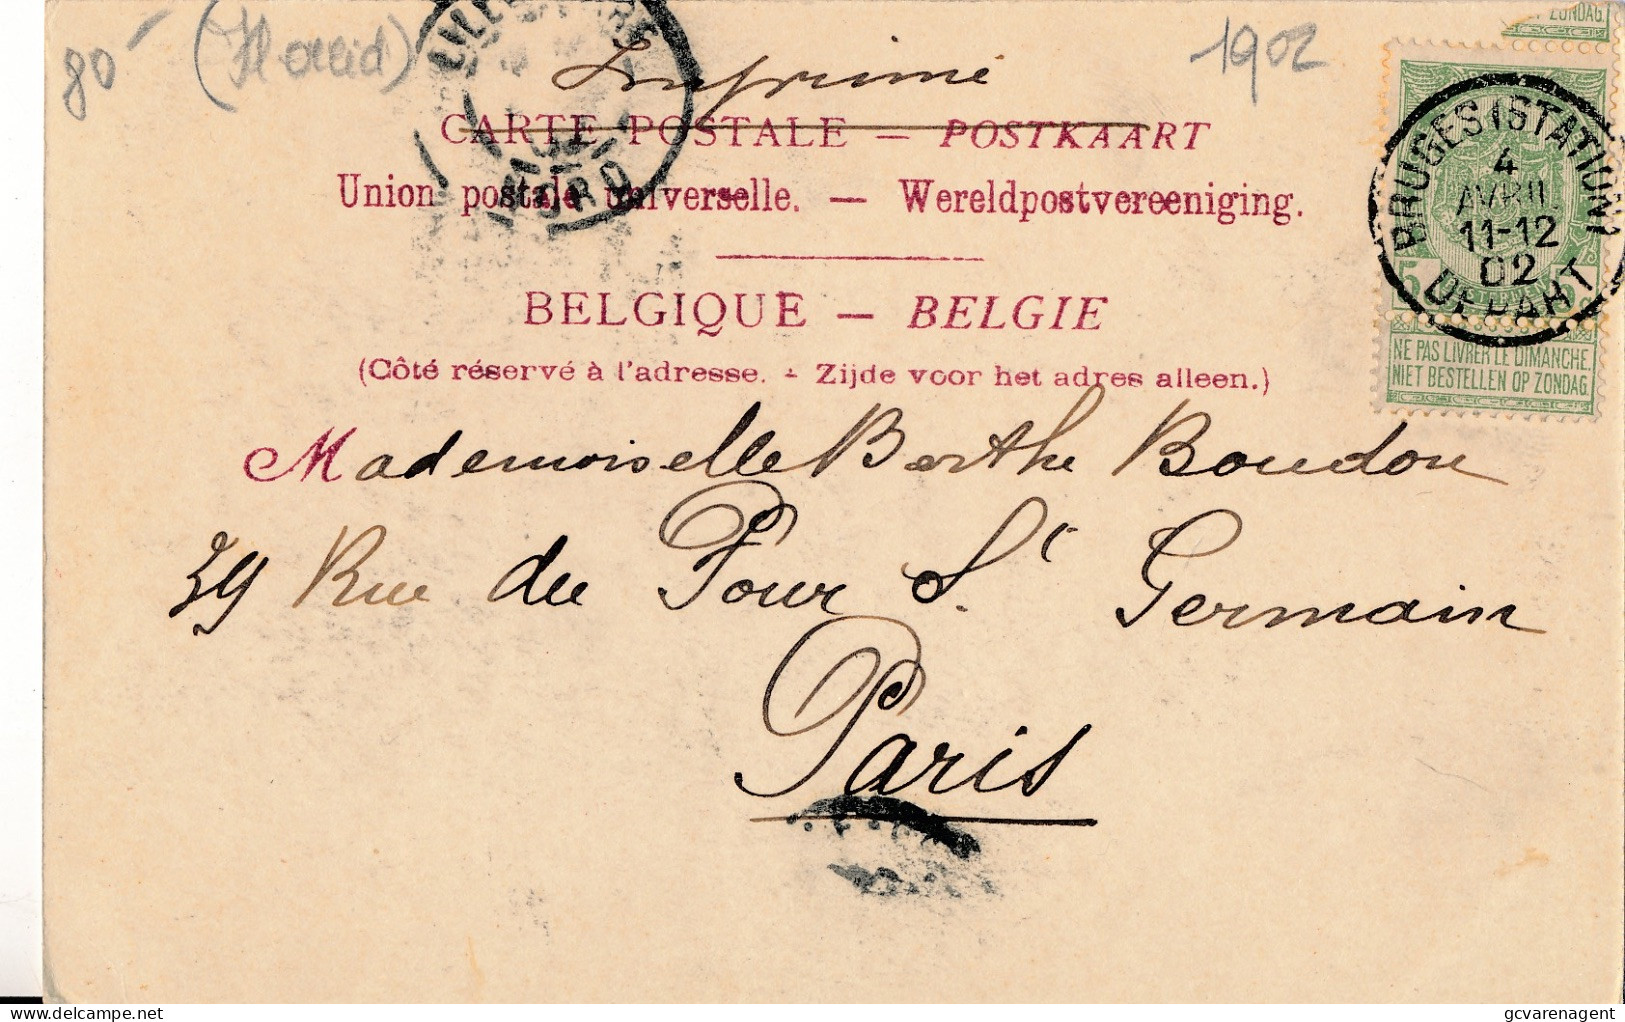 80
1902
Imprimé
CARTE POSTALE — POSTKAART
Union postale universelle. — Wereldpostvereeniging.
BELGIQUE — BELGIE
(Côté réservé à l'adresse. - Zijde voor het adres alleen.)
BRUGES (STATION)
4
AVRIL
11-12
02
DEPART
5 5
NE PAS LIVRER LE DIMANCHE
NIET BESTELLEN OP ZONDAG.
Mademoiselle Berthe Boudon
39 Rue du Four St Germain
Paris
gcvarenagent